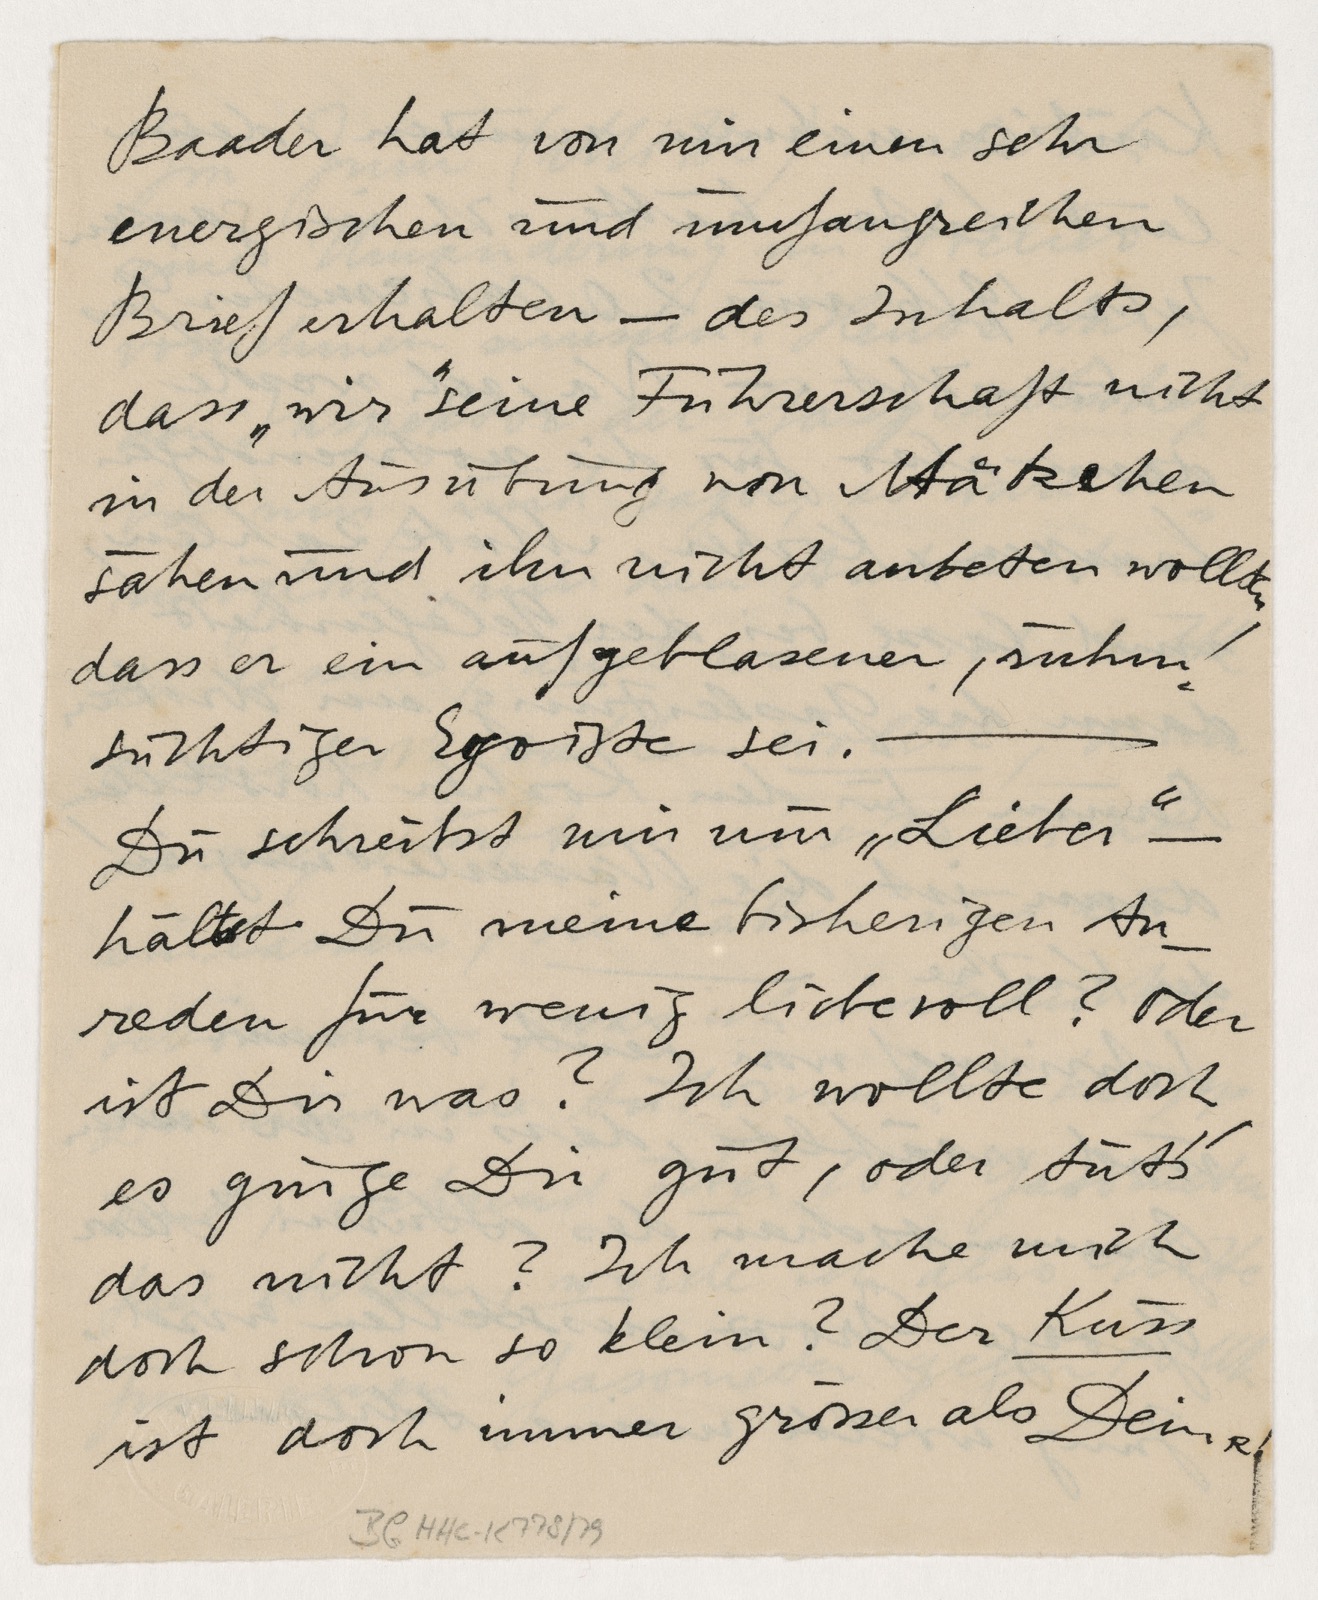 Baader hat von mir einen sehr
energischen und umfangreichen
Brief erhalten — des Inhalts,
dass „wir“ seine Führerschaft nicht
in der Ausübung von Mätzchen
sähen und ihn nicht anbeten wollten,
dass er ein aufgeblasener, ruhm-
süchtiger Egoiste sei. —
Du schreibst mir nur „Lieber“ —
hältst Du meine bisherigen An-
reden für wenig liebevoll? Oder
ist Dir was? Ich wollte doch,
es ginge Dir gut, oder tut's
das nicht? Ich mache mich
doch schon so klein? Der Kuss
ist doch immer grösser als Dein R!
BG HHC-K 778/79